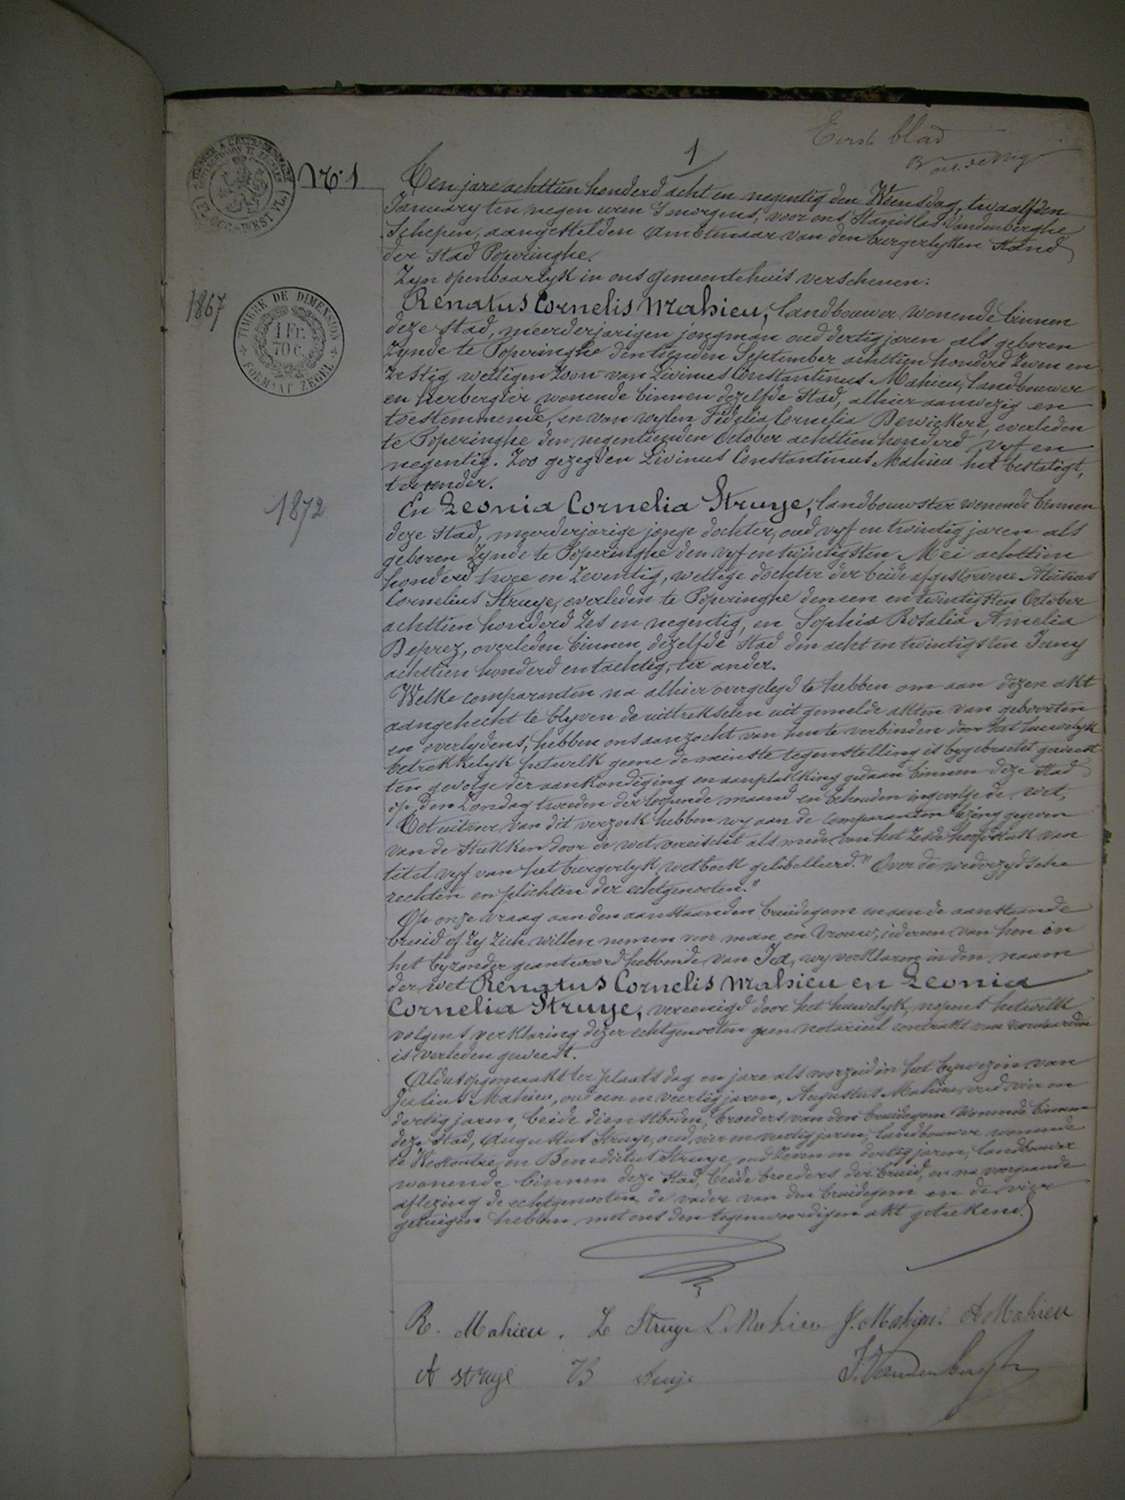 Eerste blad
1
Nr. 1
Ten jare achttien honderd acht en negentig den Woensdag, twaalfden
January ten negen uren 's morgens, voor ons Stanislas Vandenberghe
Schepen, aangestelden Amtenaar van den burgerlyken Stand
der Stad Poperinghe.
Zyn openbaarlyk in ons gemeentehuis verschenen:
1867
TIMBRE DE DIMENSION
1 FR. 70 C.
FORMAAT ZEGEL
Renatus Cornelis Mahieu, landbouwer wonende binnen
deze stad, meerderjarigen jongman oud dertig jaren als geboren
zynde te Poperinghe den tienden September achttien honderd zeven en
zestig wettigen zoon van Livinus Constantinus Mahieu, landbouwer
en herbergier wonende binnen dezelfde stad, alhier aanwezig en
toestemmende, en van wylen Fidelia Cornelia Dewickere, overleden
te Poperinghe den negentienden October achttien honderd vyf en
negentig. Zoo gezegden Livinus Constantinus Mahieu het bestatigt,
ter ander.
1872
En Leonia Cornelia Struye, landbouwster wonende binnen
deze Stad, meerderjarige jonge dochter, oud vyf en twintig jaren als
geboren zynde te Poperinghe den vyf en twintigsten Mei achttien
honderd twee en zeventig, wettige dochter der beide afgestorvene
Cornelius Struye, overleden te Poperinghe den een en twintigsten October
achttien honderd zes en negentig, en Sophia Rosalia Amelia
Deprez, overleden binnen dezelfde stad den acht en twintigsten Juny
achttien honderd en tachtig, ter ander.
Welke comparanten na alhier overgelegd te hebben om aan dezen akt
aangehecht te blyven de uittrekselen uit gemelde akten van geboorten
en overlydens, hebben ons aanzocht van hen te verbinden door het huwelyk
betrekkelyk hetwelk geene de minste tegenstelling is bygebracht geweest
ten gevolge der aankondiging en aanplakking gedaan binnen deze Stad
op den Zondag tweeden der loopende maand en behouden ingevolge de wet,
Tot uitvoer van dit verzoek hebben wy aan de comparanten lezing gegeven
van de stukken door de wet vereischt als mede van het zesde hoofdstuk van
titel vyf van het burgerlyk wetboek gelibelleerd "Over de wederzydsche
rechten en plichten der echtgenooten."
Op onze vraag aan den aanstaanden bruidegom en aan de aanstaande
bruid of zy zich willen nemen voor man en vrouw, iedereen van hen in
het byzonder geantwoord hebbende van Ja, wy verklaren in den naam
der wet Renatus Cornelis Mahieu en Leonia
Cornelia Struye, vereenigd door het huwelyk, nopens hetwelk
volgens verklaring dezer echtgenooten geen notarieel contrakt van voorwaarden
is verleden geweest.
Aldus opgemaakt ter plaats dag en jare als voorzeid in het bywezen van
Julius Mahieu, oud een en veertig jaren, Augustus Mahieu, oud vier en
dertig jaren, beide dienstboden, broeders van den bruidegom wonende binnen
deze stad, Augustus Struye, oud vier en veertig jaren, landbouwer wonende
te Westoutre, en Benedictus Struye, oud zeven en dertig jaren, landbouwer
wonende binnen deze Stad, beide broeders der bruid, en na voorgaande
aflezing de echtgenooten de vader van den bruidegom en de vier
getuigen hebben met ons den tegenwoordigen akt geteekend.
R. Mahieu. L Struye L. Mahieu J. Mahieu A Mahieu
A struye B Struye S. Vandenberghe